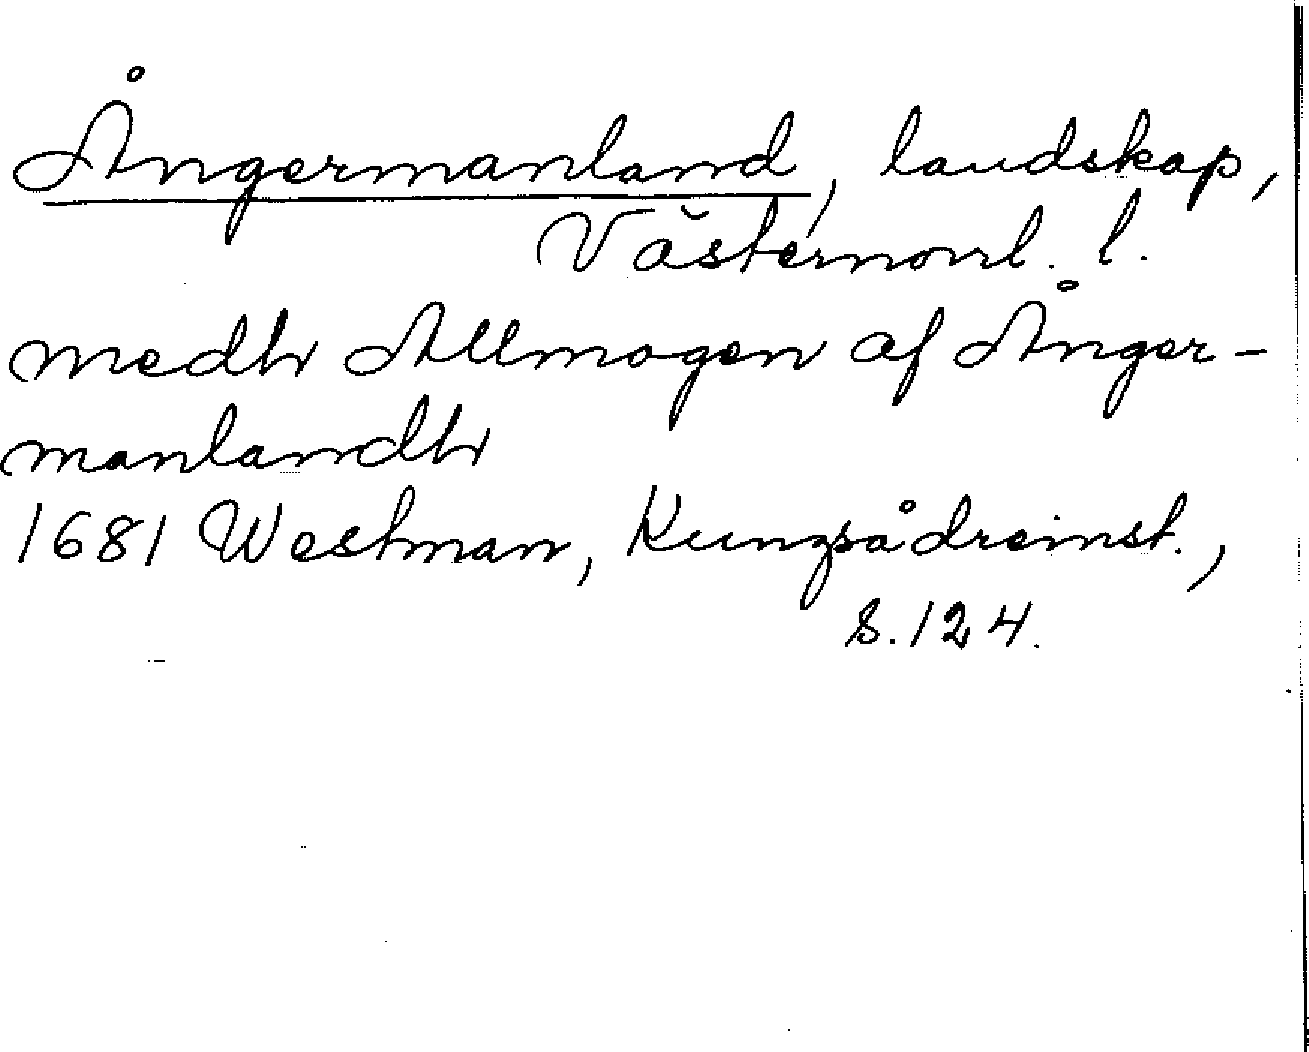 Ångermanland, landskap,
Västernorrl. l.
medh Allmogen af Ånger-
manlandh
1681 Westman, Kungsådreinst.,
s. 124.